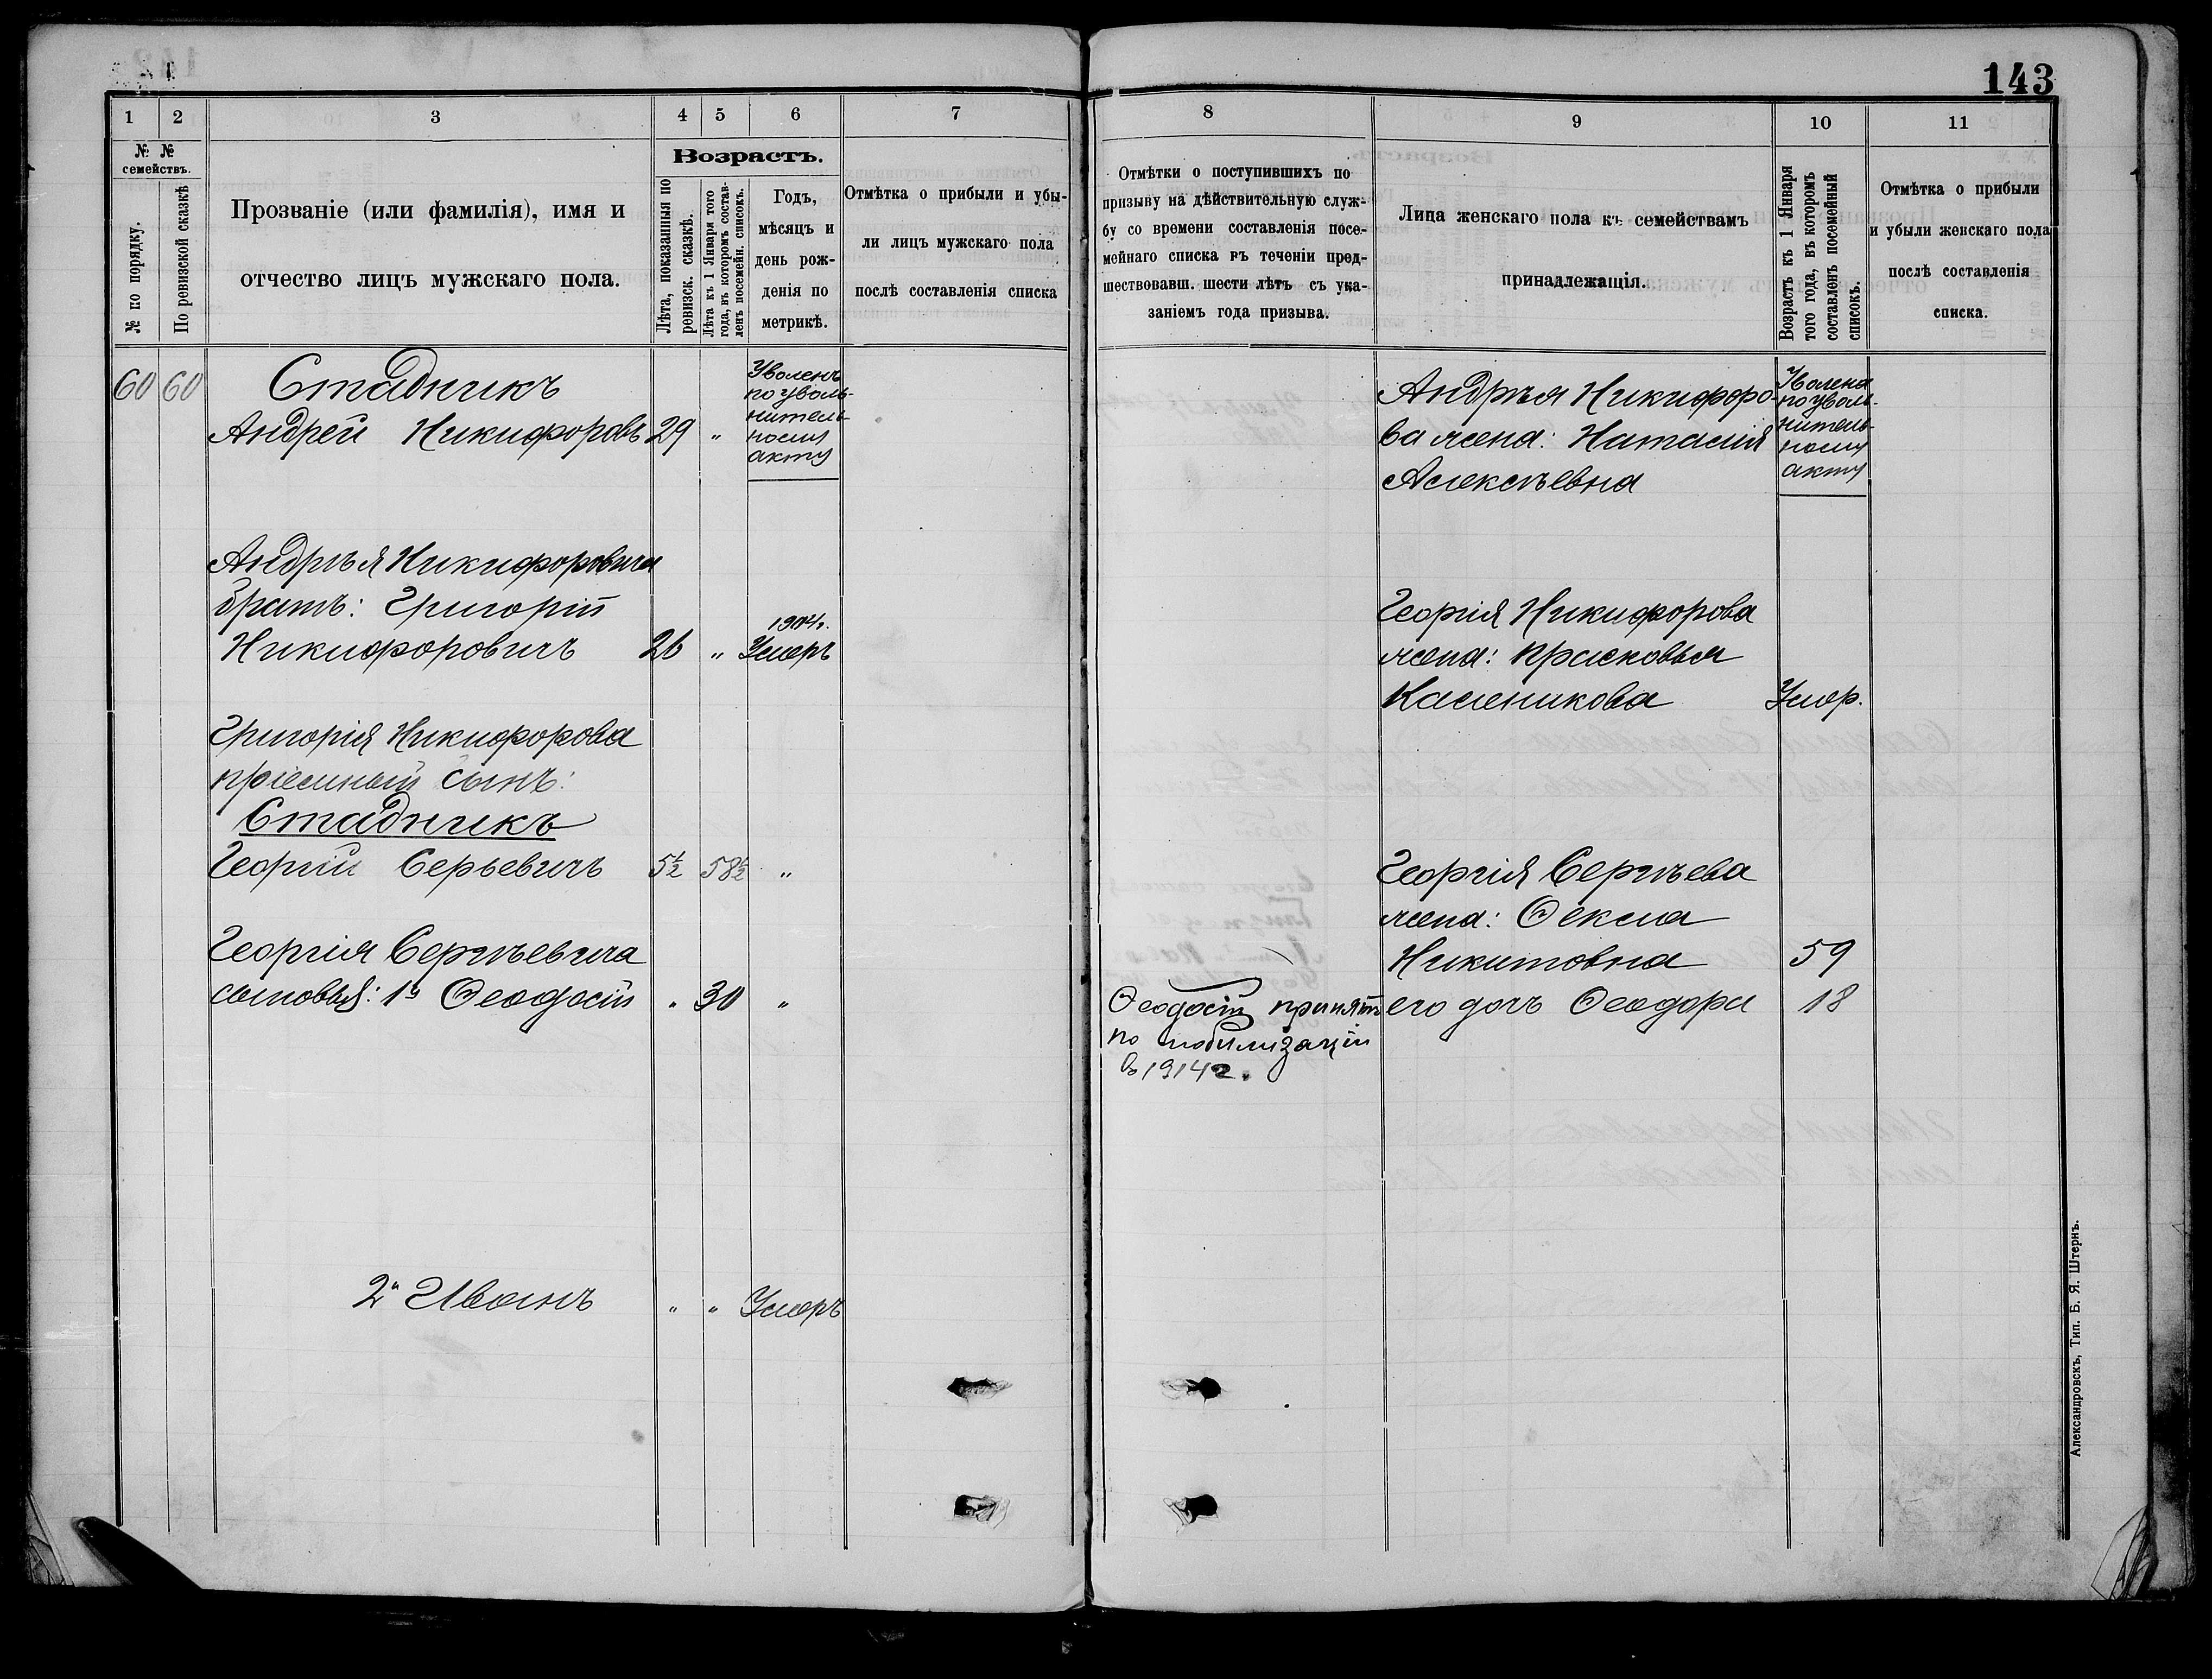 143
1 2 3 4 5 6 7
№ № семействъ.
№ по порядку.
По ревизской сказкѣ
Прозваніе (или фамилія), имя и
отчество лицъ мужскаго пола.
Возрастъ.
Лѣта, показанныя по
ревизск. сказкѣ.
Лѣта къ 1 Января того
года, въ которомъ состав-
ленъ посемейн. списокъ.
Годъ,
мѣсяцъ и
день рож-
денія по
метрикѣ.
Отмѣтка о прибыли и убы-
ли лицъ мужскаго пола
послѣ составленія списка
60 60 Стадникъ
Андрей Никифоровъ 29 "
Уволенъ
по уволь-
нитель-
ному
акту
Андрѣя Никифоровича
братъ: Григорій
Никифоровичъ 26 "
1914г.
Умеръ
Григорія Никифорова
пріемный сынъ:
Стадникъ
Георгій Серьевичъ 5½ 58½ "
Георгія Сергѣевича
сыновья: 1й Ѳеодосій " 30 "
2й Иванъ " " Умеръ
8 9 10 11
Отмѣтки о поступившихъ по
призыву на дѣйствительную служ-
бу со времени составленія посе-
мейнаго списка въ теченіи пред-
шествовавш. шести лѣтъ съ ука-
заніемъ года призыва.
Лица женскаго пола къ семействамъ
принадлежащія.
Возрастъ къ 1 Января
того года, въ которомъ
составленъ посемейный
списокъ.
Отмѣтка о прибыли
и убыли женскаго пола
послѣ составленія
списка.
Андрѣя Никифоро-
ва жена: Наталія
Алексѣевна
Уволена
по уволь-
нитель-
ному
акту
Георгія Никифорова
жена: Прасковья
Каленикова Умер.
Георгія Сергѣева
жена: Ѳекла
Никитовна 59
его дочь Ѳеодора 18
Ѳеодосій принятъ
по мобилизаціи
въ 1914 г.
Александровскъ, Тип. Б. Я. Штернъ.